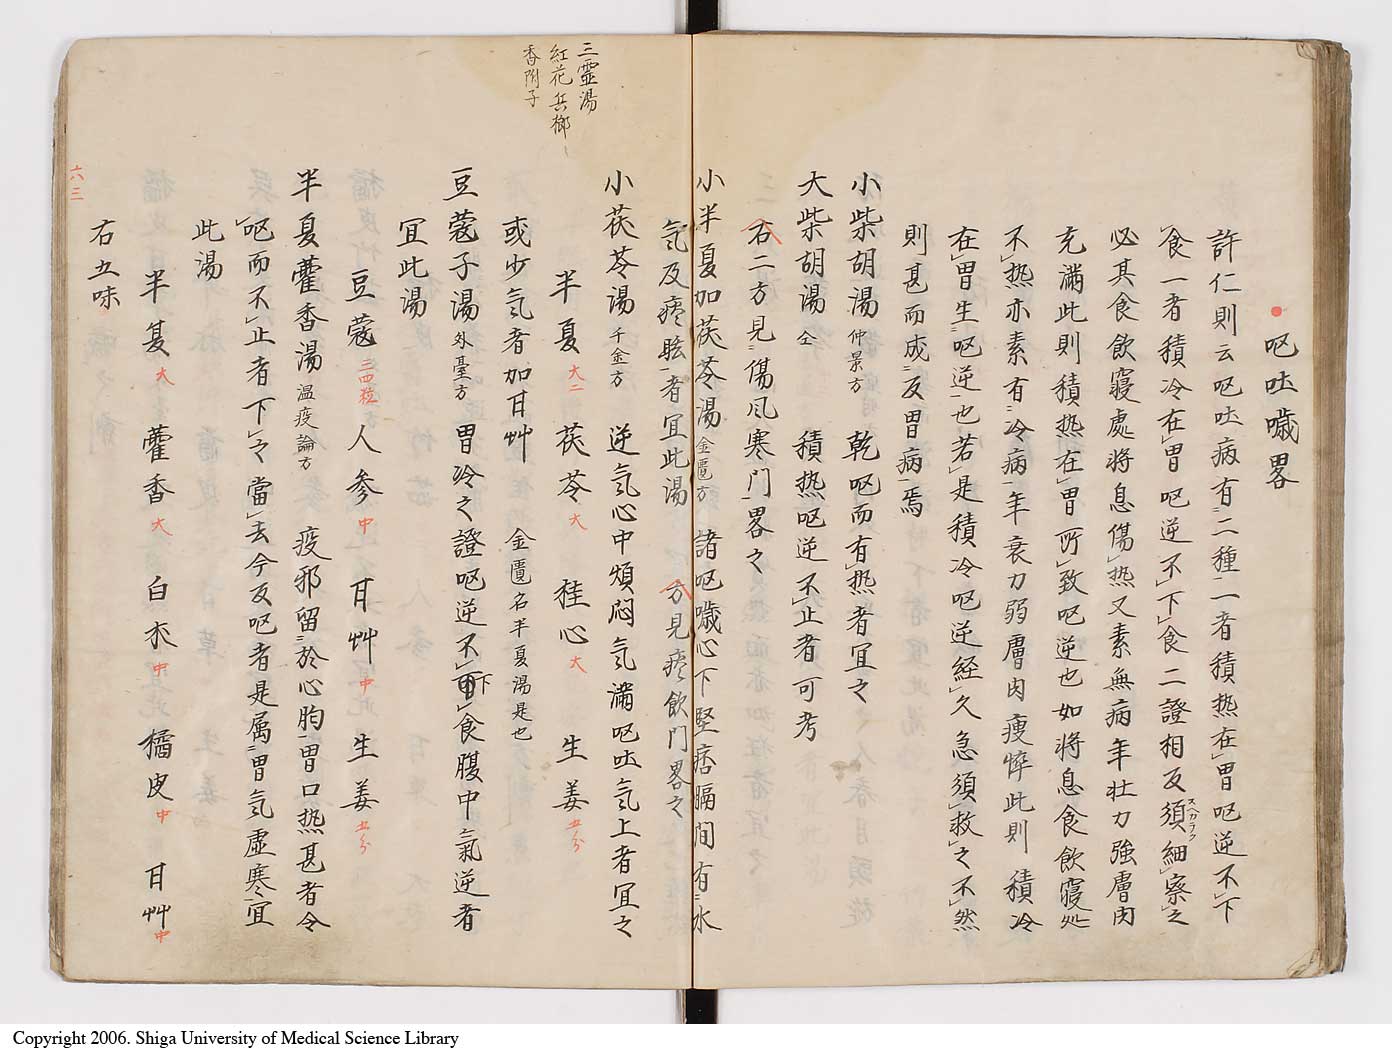 呕吐噦畧
許仁則云呕吐病有二種一者積热在胃呕逆不下
食一者積冷在胃呕逆不下食二證相反須細察之
スヘカラク
必其食飲寢處將息傷热又素無病年壮力強膚肉
充滿此則積热在胃所致呕逆也如將息食飲寢処
不热亦素有冷病年衰力弱膚肉痩悴此則積冷
在胃生呕逆也若是積冷呕逆経久急須救之不然
則甚而成反胃病焉
小柴胡湯 仲景方 乾呕而有热者宜之
大柴胡湯 仝 積热呕逆不止者可考
右二方見傷风寒門畧之
小半夏加茯苓湯 金匱方 諸呕噦心下堅痞膈間有水
気及痰眩者宜此湯 方見痰飲門畧之
三霊湯
紅花 兵榔
香附子
小茯苓湯 千金方 逆気心中煩悶気満呕吐気上者宜之
半夏 大二 茯苓 大 桂心 大 生姜 五分
或少気者加甘艸 金匱名半夏湯是也
豆蔻子湯 外臺方 胃冷之證呕逆不下食腹中氣逆者
宜此湯
豆蔻 三四粒 人参 中 甘艸 中 生姜 五分
半夏藿香湯 温疫論方 疫邪留於心胸胃口热甚者令
呕而不止者下之令當去今反呕者是属胃気虚寒宜
此湯
半夏 大 藿香 大 白朮 中 橘皮 中 甘艸 中
右五味
六三
Copyright 2006. Shiga University of Medical Science Library